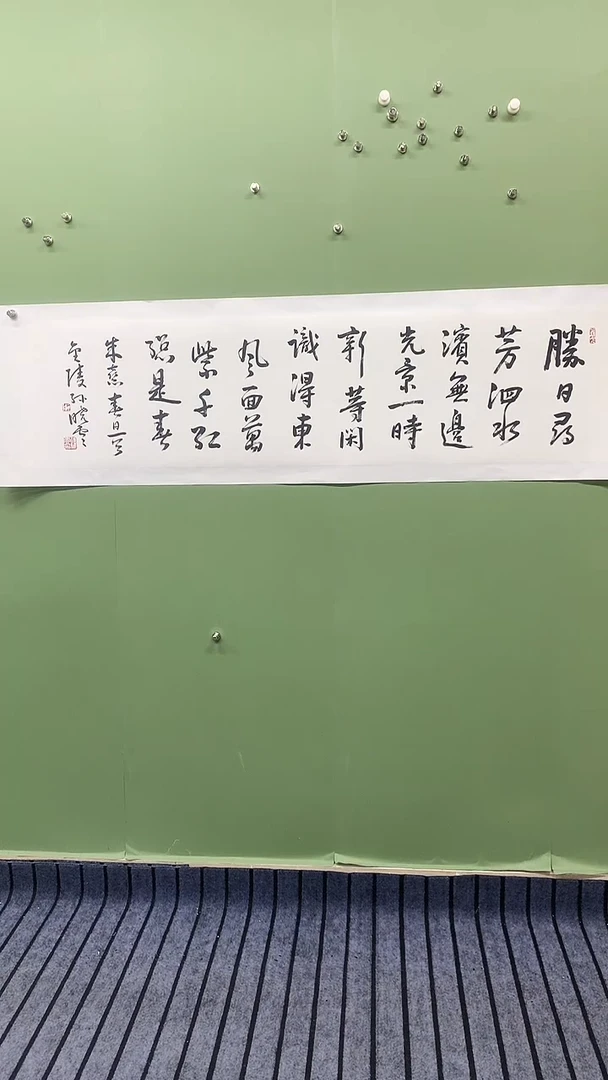 勝日尋
芳泗水
濱無邊
光景一時
新等閑
識得東
風面萬
紫千紅
總是春
朱熹春日
金陵孫曉雲